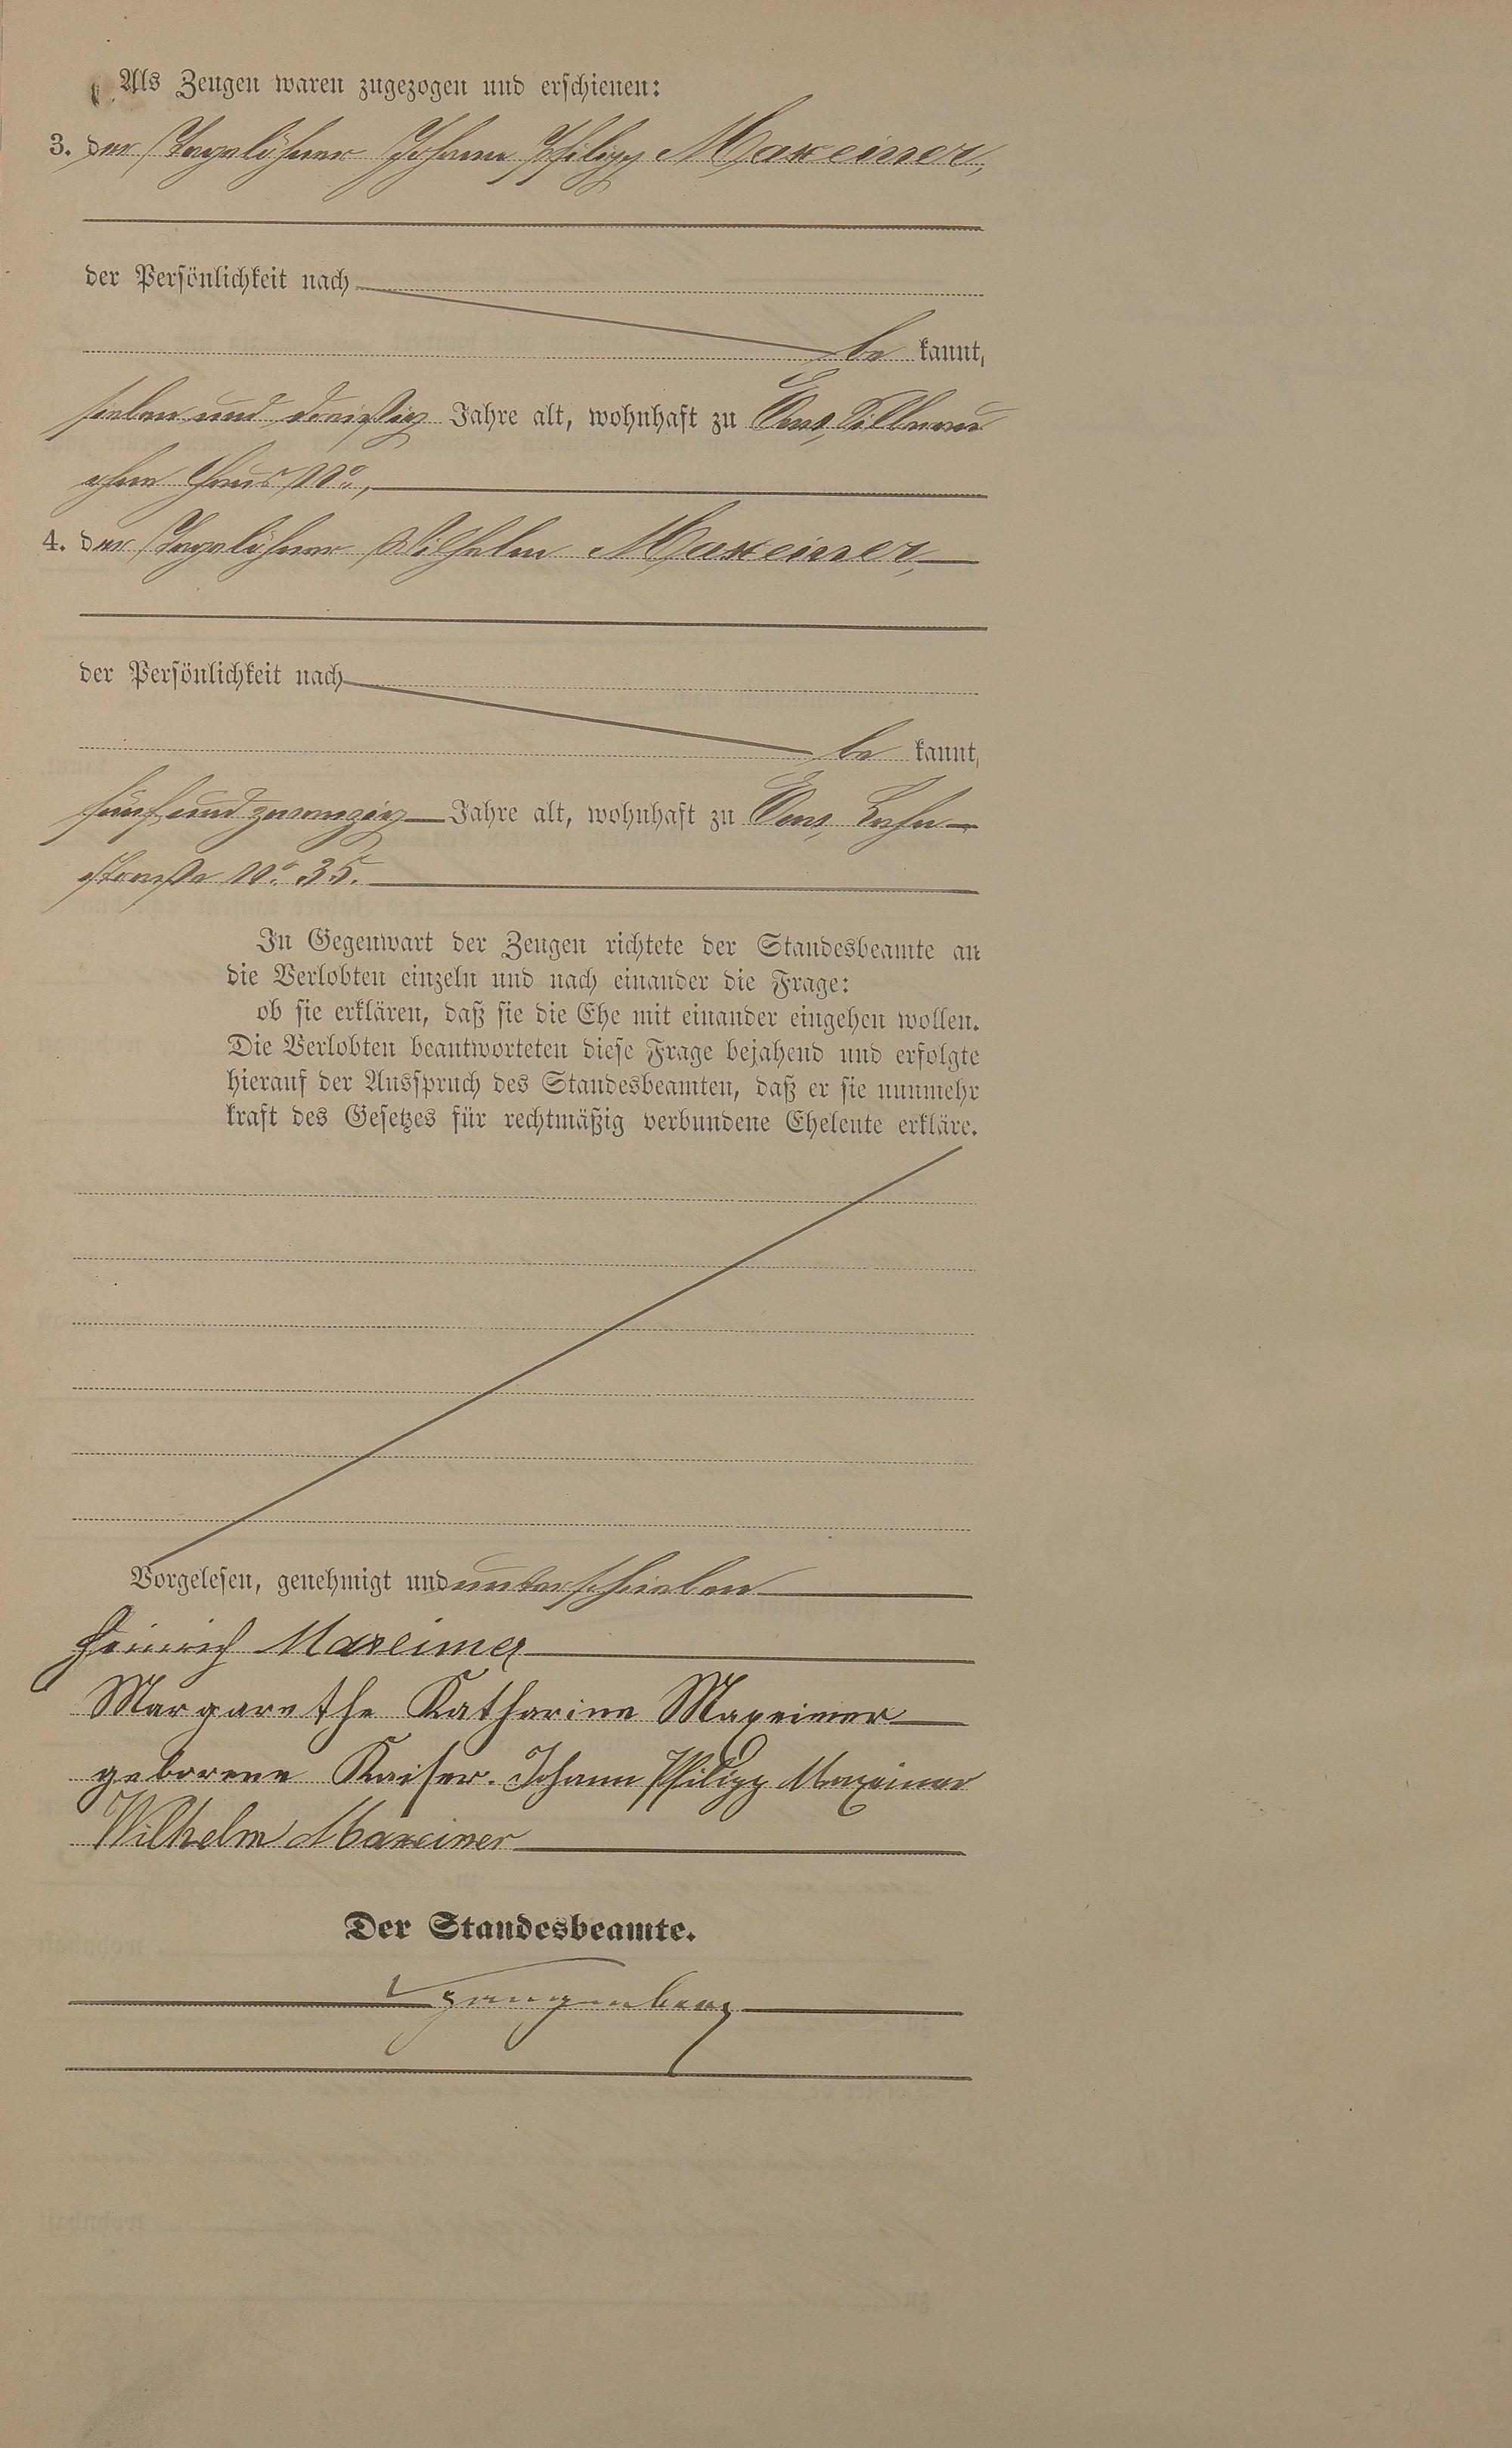 Als Zeugen waren zugezogen und erschienen:
3. der Tagelöhner Johann Philipp Maxeiner,
der Persönlichkeit nach
be kannt,
sieben und dreißig Jahre alt, wohnhaft zu Ems,
ohne Haus No,
4. der Tagelöhner Wilhelm Maxeiner,
der Persönlichkeit nach
be kannt,
fünf und zwanzig Jahre alt, wohnhaft zu Ems, Lahn-
straße No. 35.
In Gegenwart der Zeugen richtete der Standesbeamte an
die Verlobten einzeln und nach einander die Frage:
ob sie erklären, daß sie die Ehe mit einander eingehen wollen.
Die Verlobten beantworteten diese Frage bejahend und erfolgte
hierauf der Ausspruch des Standesbeamten, daß er sie nunmehr
kraft des Gesetzes für rechtmäßig verbundene Eheleute erkläre.
Vorgelesen, genehmigt und unterschrieben
Heinrich Maxeiner
Margarethe Katharine Maxeiner
geborene Kaiser. Johann Philipp Maxeiner
Wilhelm Maxeiner
Der Standesbeamte.